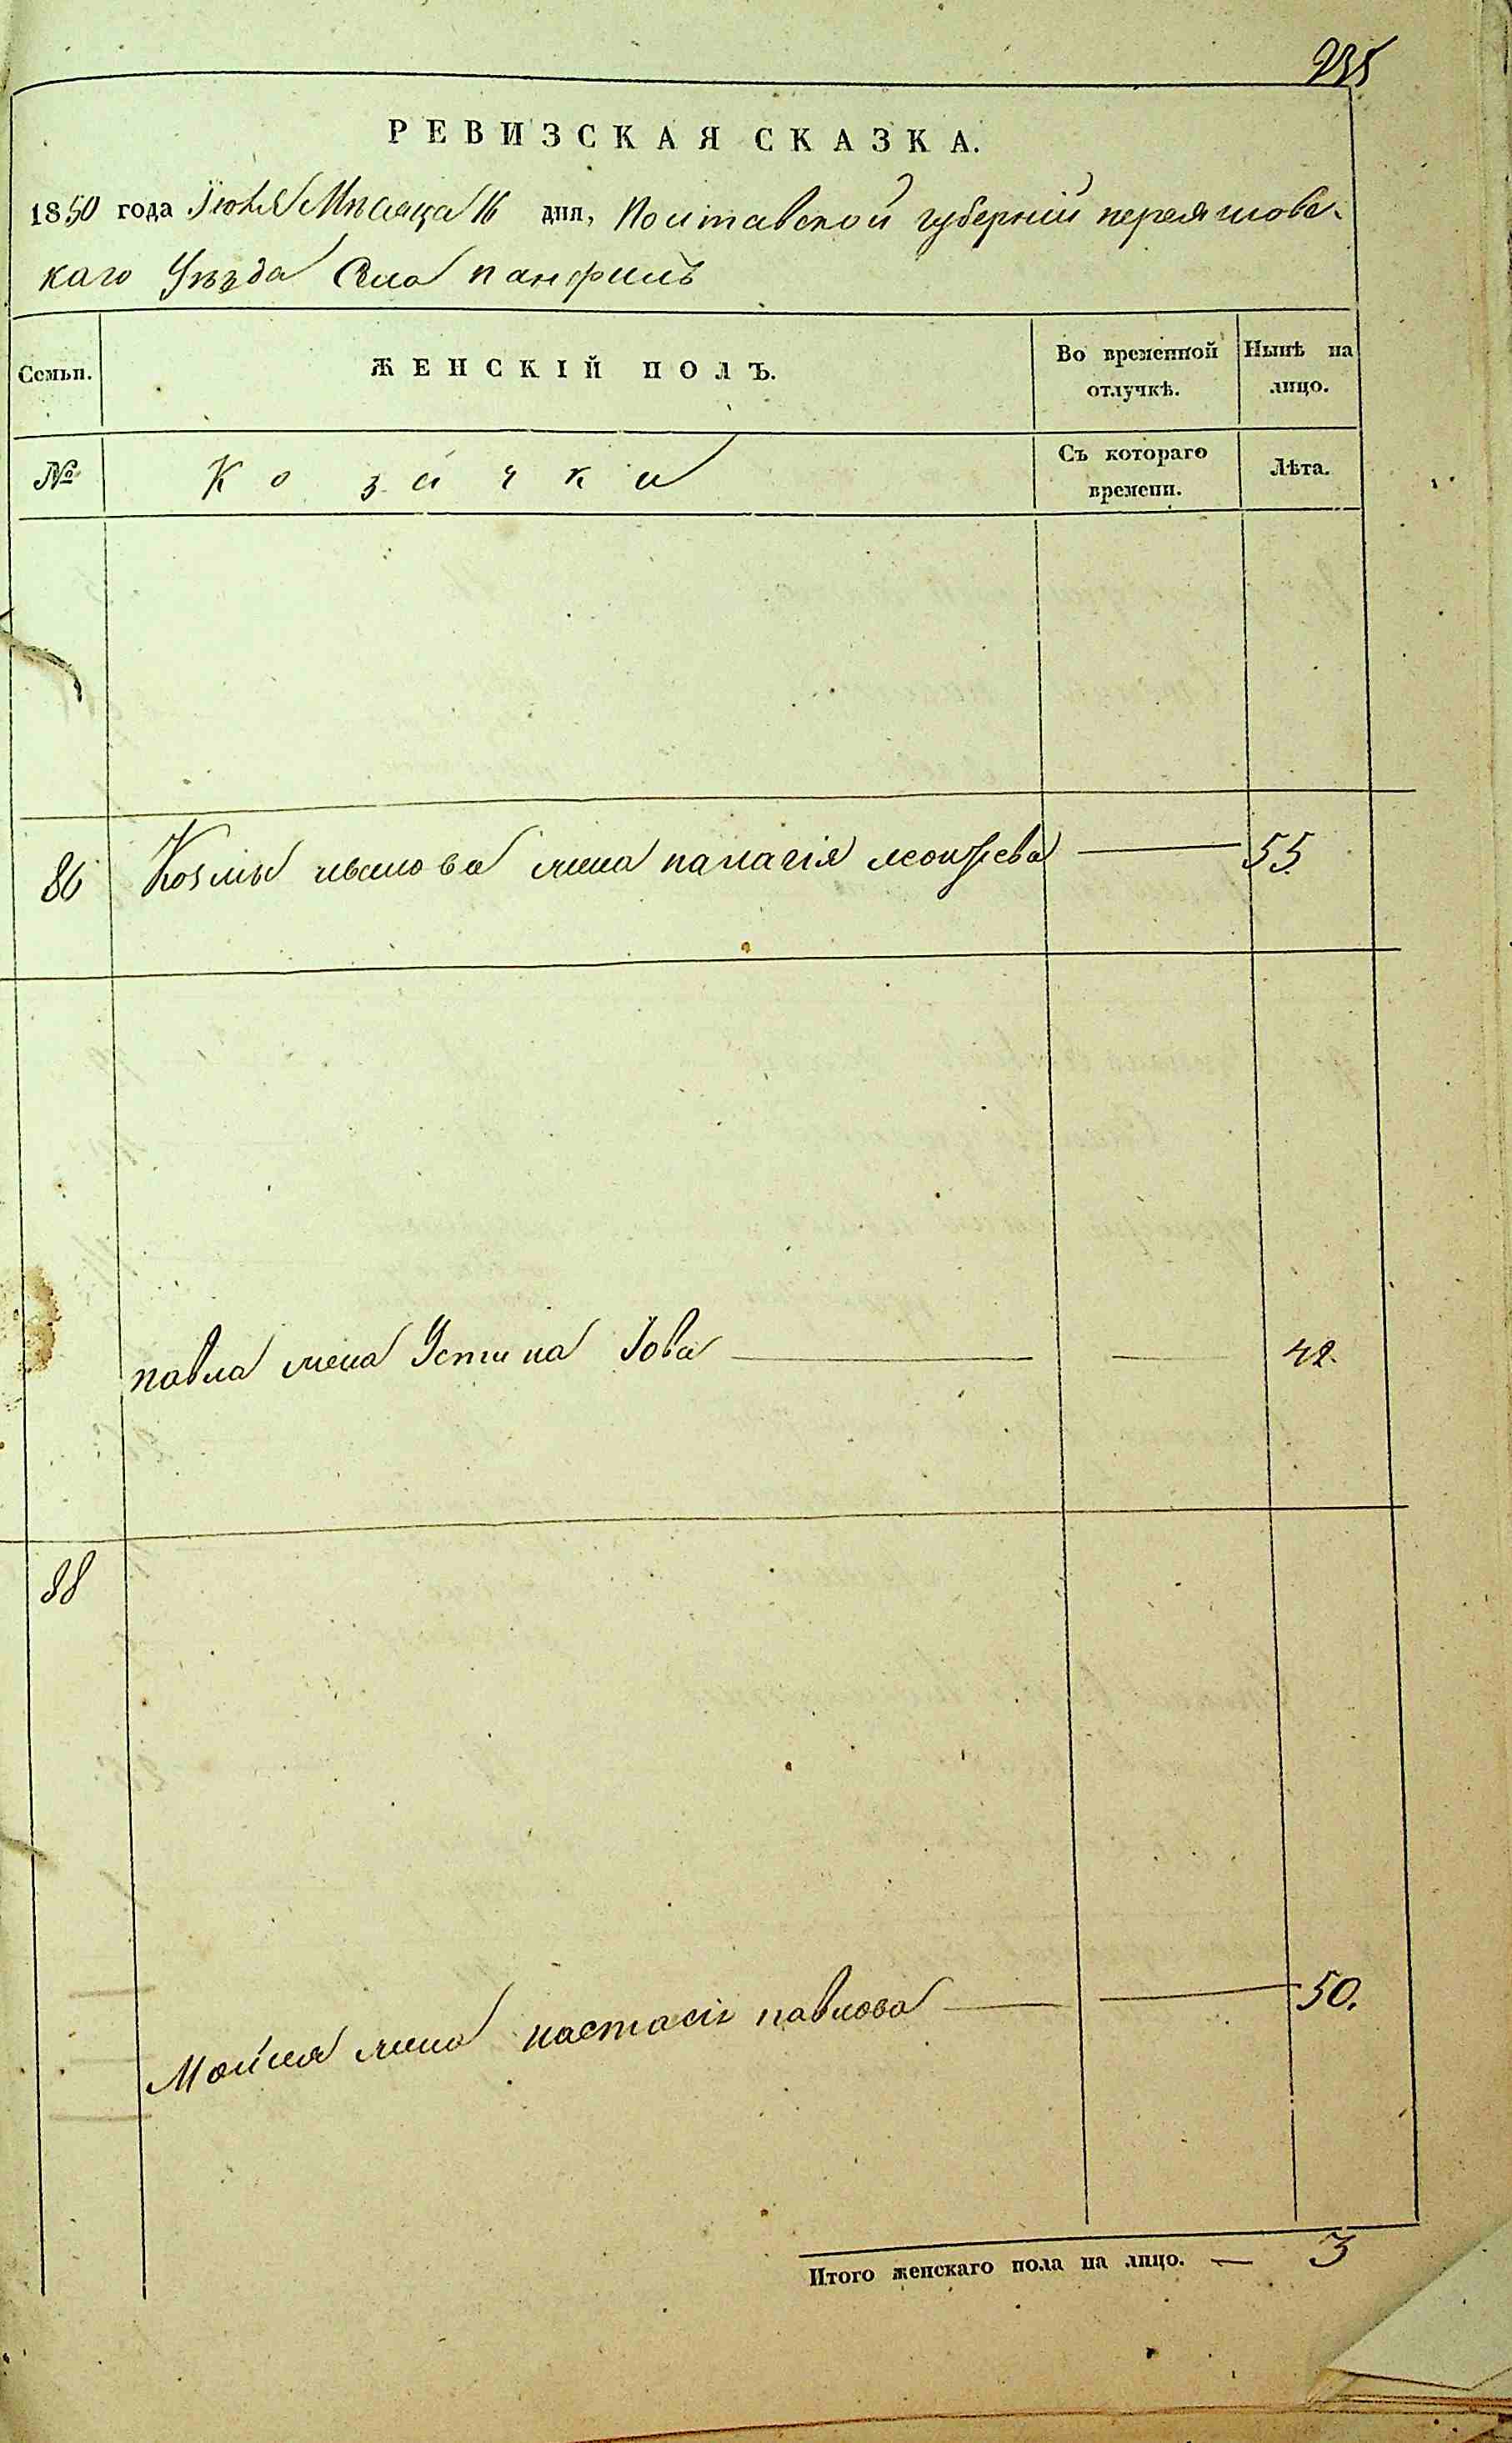 235
РЕВИЗСКАЯ СКАЗКА.
1850 года Іюля Мѣсяца 16 дня, Полтавской губерніи переяславс-
каго Уѣзда Села панфилъ
Семьи. ЖЕНСКІЙ ПОЛЪ. Во временной отлучкѣ. Нынѣ на лицо.
№ Козачки Съ котораго времени. Лѣта.
86 Козмы иванова жена палагія леонтьева — 55
павла жена Устина Іова — — 42.
88
Мойсея жена настасія павлова — — 50.
Итого женскаго пола на лицо. — 3